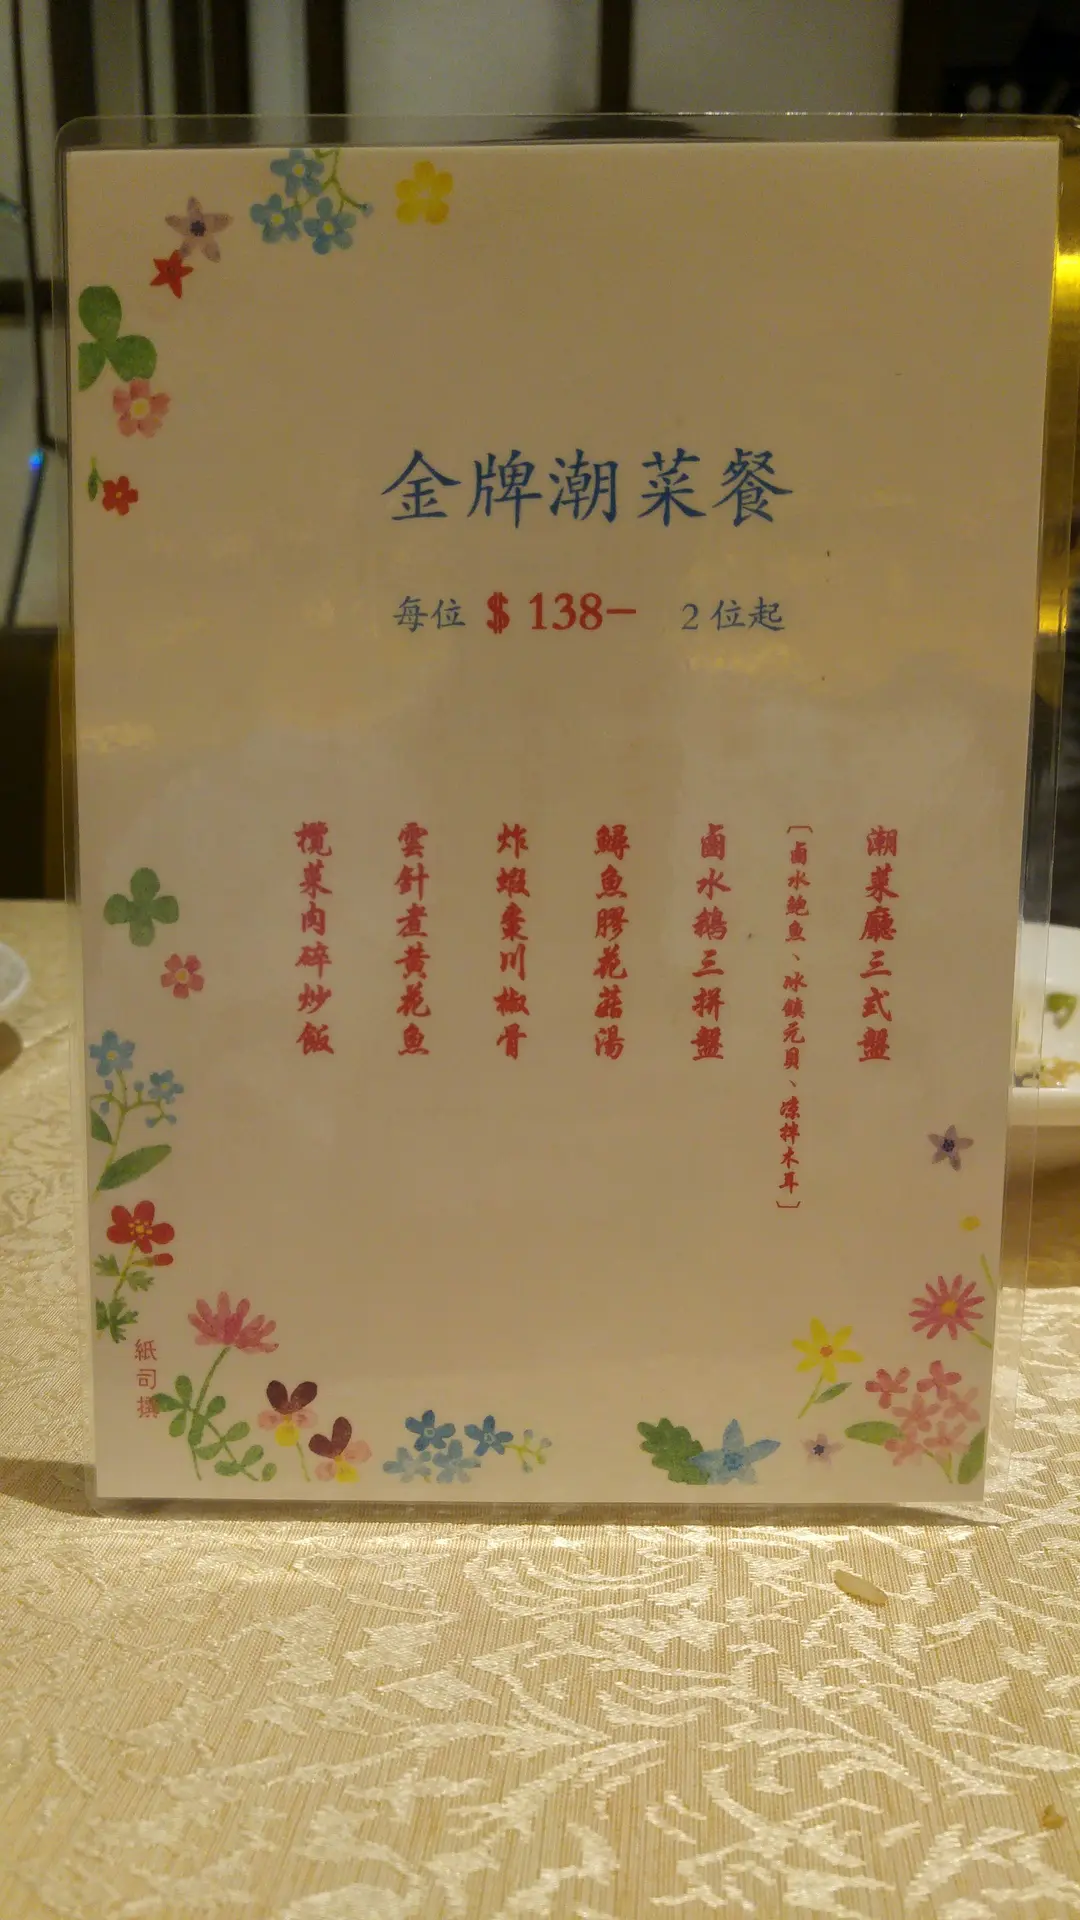 金牌潮菜餐
每位 $ 138- 2 位起
潮菜廳三式盤
〔鹵水鮑魚、冰鎮元貝、凉拌木耳〕
鹵水鵝三拼盤
鱘魚膠花菇湯
炸蝦棗川椒骨
雲針煮黃花魚
欖菜肉碎炒飯
紙司撰